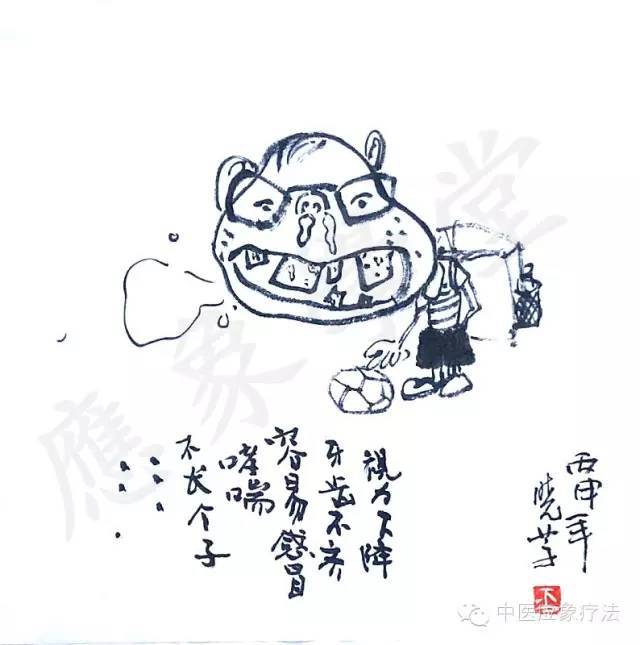 視力下降
牙齿不齐
容易感冒
哮喘
不长个子
......
丙申年
晓芋
應象草堂
中医应象疗法